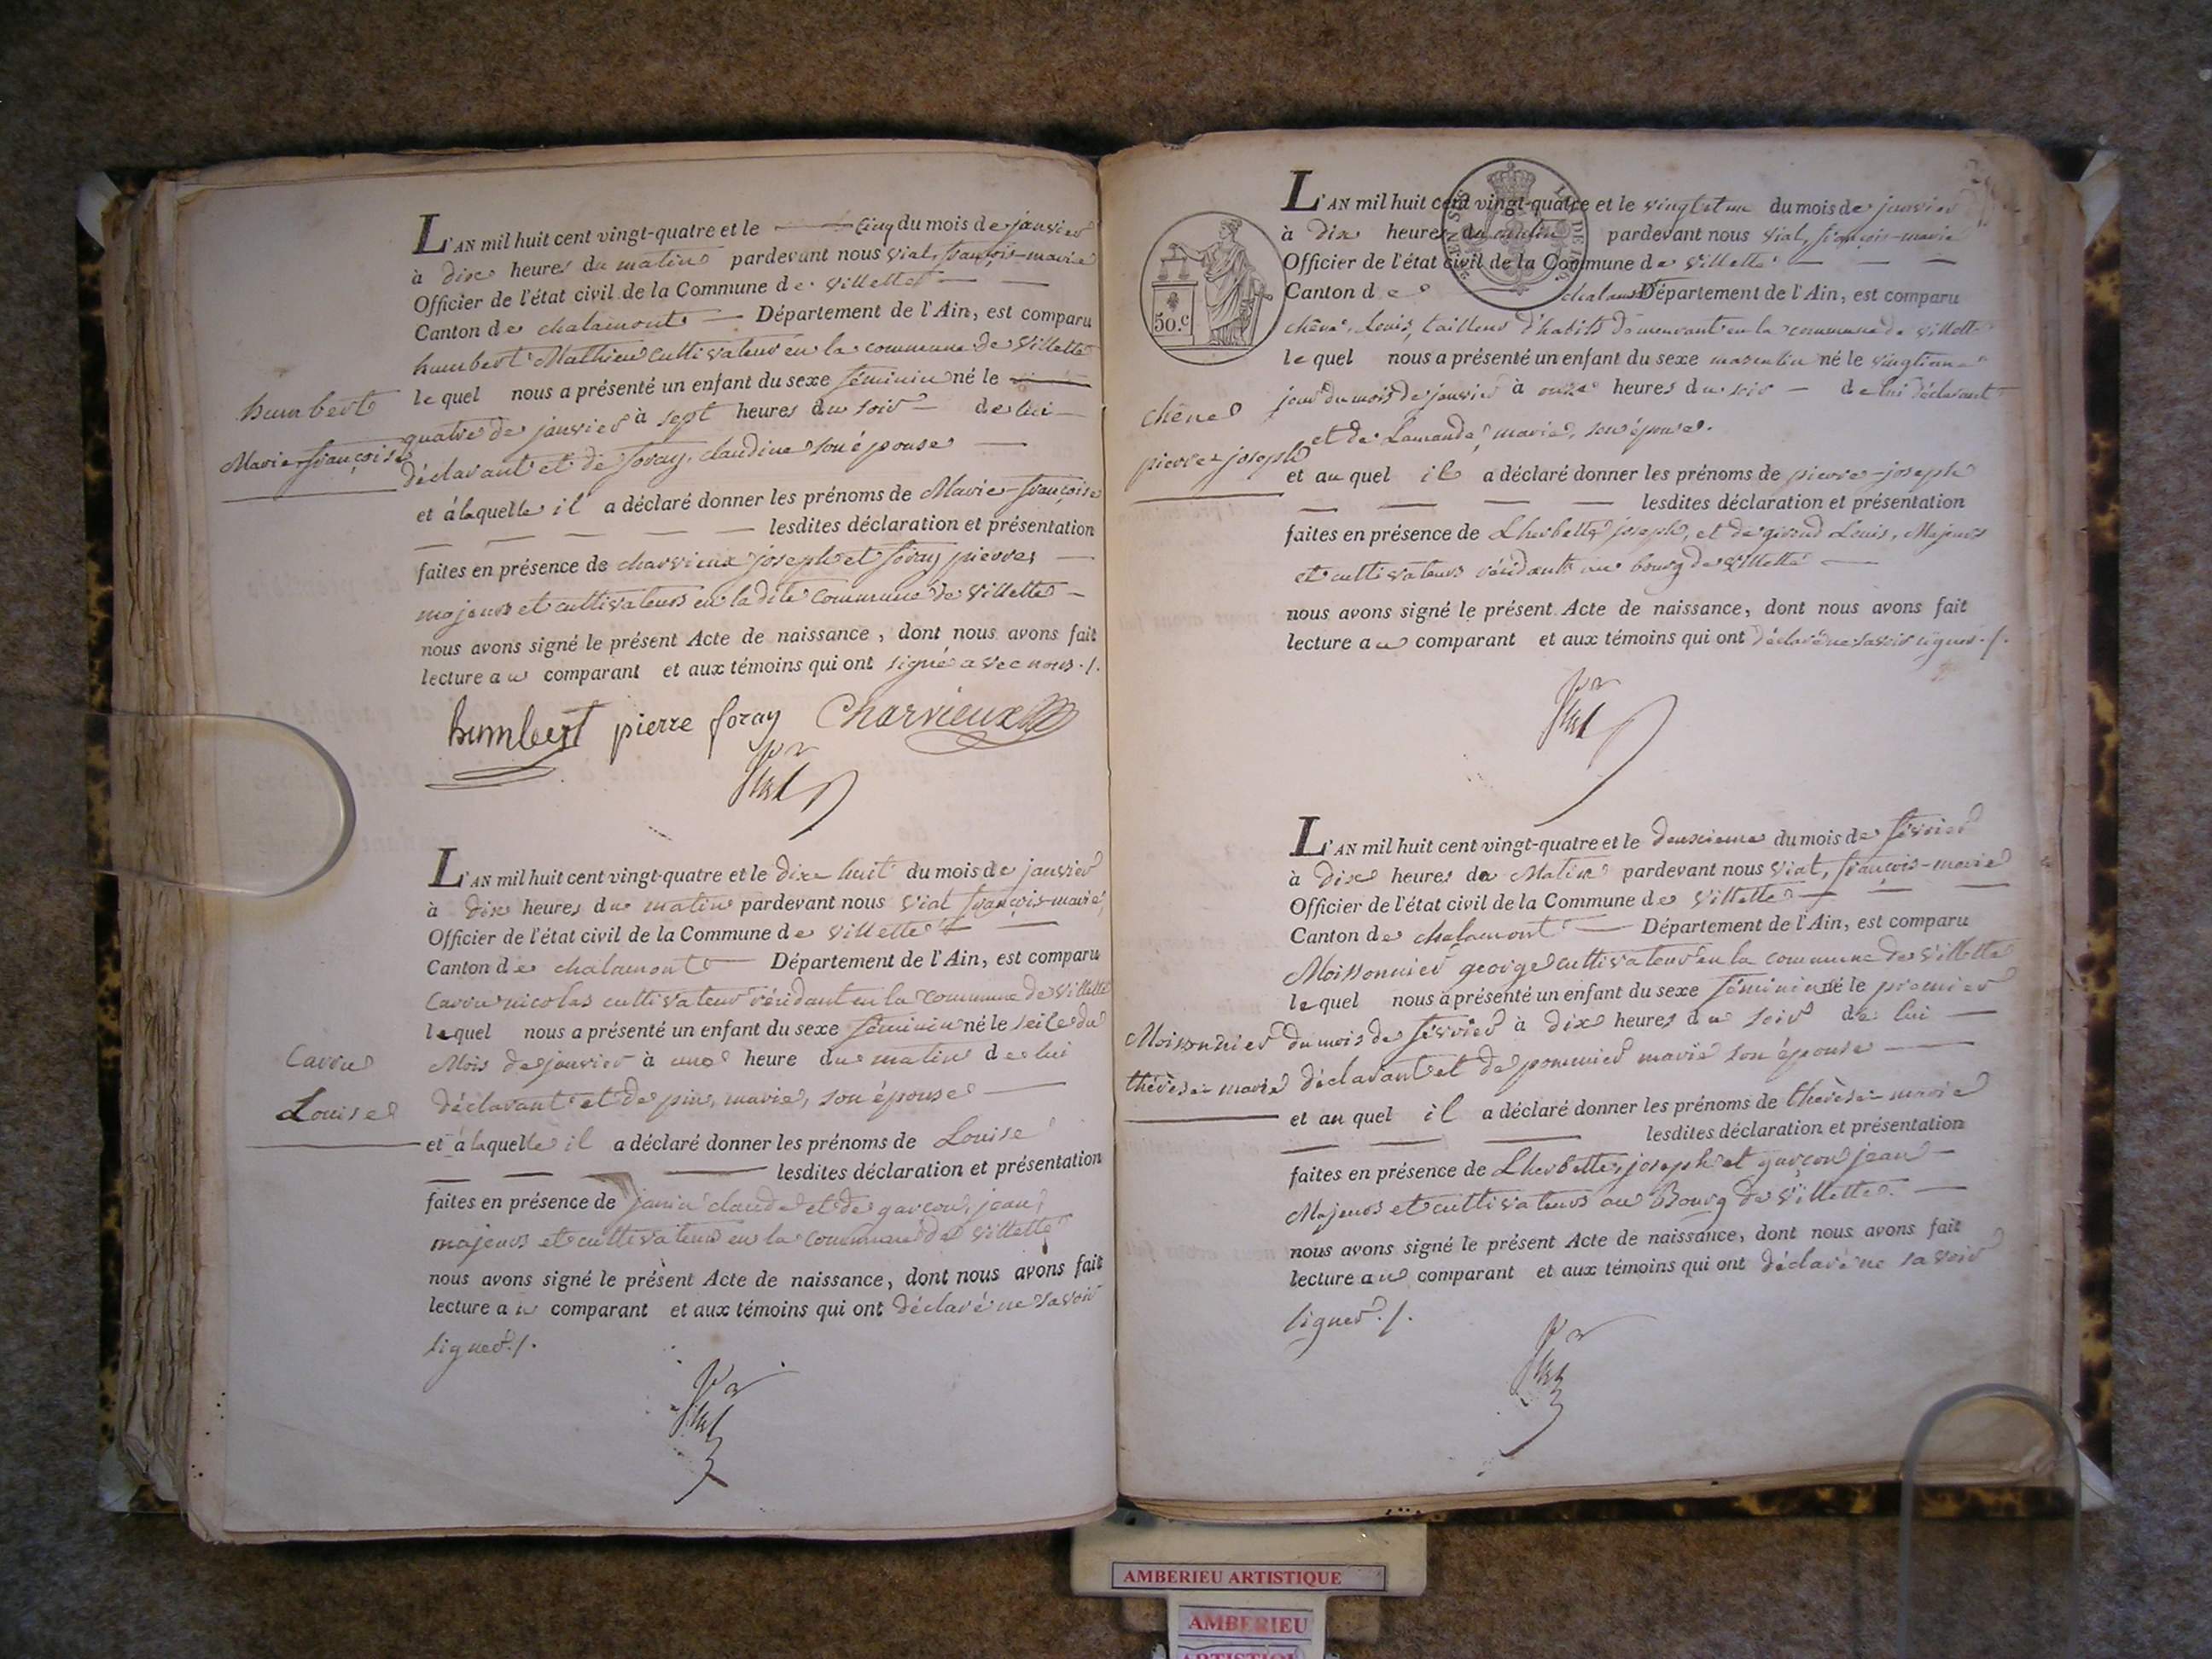 L'AN mil huit cent vingt-quatre et le cinq du mois de janvier
à dix heures du matin pardevant nous Vial, françois-marie
Officier de l'état civil de la Commune de Villette
Canton de chalamont Département de l'Ain, est comparu
humbert Mathieu cultivateur en la commune de Villette
lequel nous a présenté un enfant du sexe féminin né le
humbert
quatre de janvier à sept heures du soir de lui
Marie-françoise
déclarant et de foray, claudine son épouse
et à laquelle il a déclaré donner les prénoms de Marie-françoise
lesdites déclaration et présentation
faites en présence de charvieux joseph et foray pierre,
majeurs et cultivateurs en ladite commune de Villette
nous avons signé le présent Acte de naissance, dont nous avons fait
lecture au comparant et aux témoins qui ont signé avec nous ./.
humbert pierre foray Charvieux
Vial
L'AN mil huit cent vingt-quatre et le dix huit du mois de janvier
à dix heures du matin pardevant nous Vial françois-marie,
Officier de l'état civil de la Commune de Villette
Canton de chalamont Département de l'Ain, est comparu
Carru nicolas cultivateur résidant en la commune de Villette
lequel nous a présenté un enfant du sexe féminin né le seize du
Carru
Mois de janvier à une heure du matin de lui
Louise
déclarant et de pin, marie, son épouse
et à laquelle il a déclaré donner les prénoms de Louise
lesdites déclaration et présentation
faites en présence de janin claude et de garçon, jean,
majeurs et cultivateurs en la commune de Villette
nous avons signé le présent Acte de naissance, dont nous avons fait
lecture au comparant et aux témoins qui ont déclaré ne savoir
signer ./.
Vial
L'AN mil huit cent vingt-quatre et le vingt et un du mois de janvier
à dix heures du matin pardevant nous Vial, françois-marie
Officier de l'état civil de la Commune de Villette
Canton de chalamont Département de l'Ain, est comparu
50.c
chêne, Louis, tailleur d'habits demeurant en la commune de Villette
lequel nous a présenté un enfant du sexe masculin né le vingtième
chêne
jour du mois de janvier à onze heures du soir de lui déclarant
et de Lamande, marie, son épouse.
pierre-joseph
et auquel il a déclaré donner les prénoms de pierre-joseph
lesdites déclaration et présentation
faites en présence de Lherbette joseph, et de giroud Louis, Majeurs
et cultivateurs résidant au bourg de Villette
nous avons signé le présent Acte de naissance, dont nous avons fait
lecture au comparant et aux témoins qui ont déclaré ne savoir signer ./.
Vial
L'AN mil huit cent vingt-quatre et le deuxieme du mois de février
à dix heures de Matin pardevant nous Vial, françois-marie
Officier de l'état civil de la Commune de Villette
Canton de chalamont Département de l'Ain, est comparu
Moissonnier george cultivateur en la commune de Villette
lequel nous a présenté un enfant du sexe féminin né le premier
Moissonnier
du mois de février à dix heures du soir de lui
thérèse-marie
déclarant et de pommier marie son épouse
et auquel il a déclaré donner les prénoms de thérèse-marie
lesdites déclaration et présentation
faites en présence de Lherbette, joseph et garçon jean
Majeurs et cultivateurs au Bourg de Villette.
nous avons signé le présent Acte de naissance, dont nous avons fait
lecture au comparant et aux témoins qui ont déclaré ne savoir
signer ./.
Vial
AMBERIEU ARTISTIQUE
AMBERIEU
ARTISTIQUE